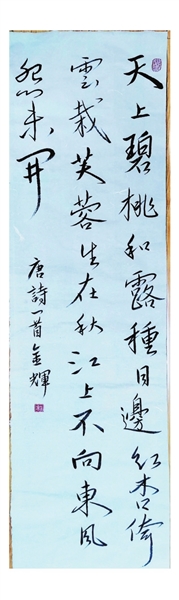 天上碧桃和露種日邊紅杏倚
雲栽芙蓉生在秋江上不向東風
怨未開
唐詩一首金輝